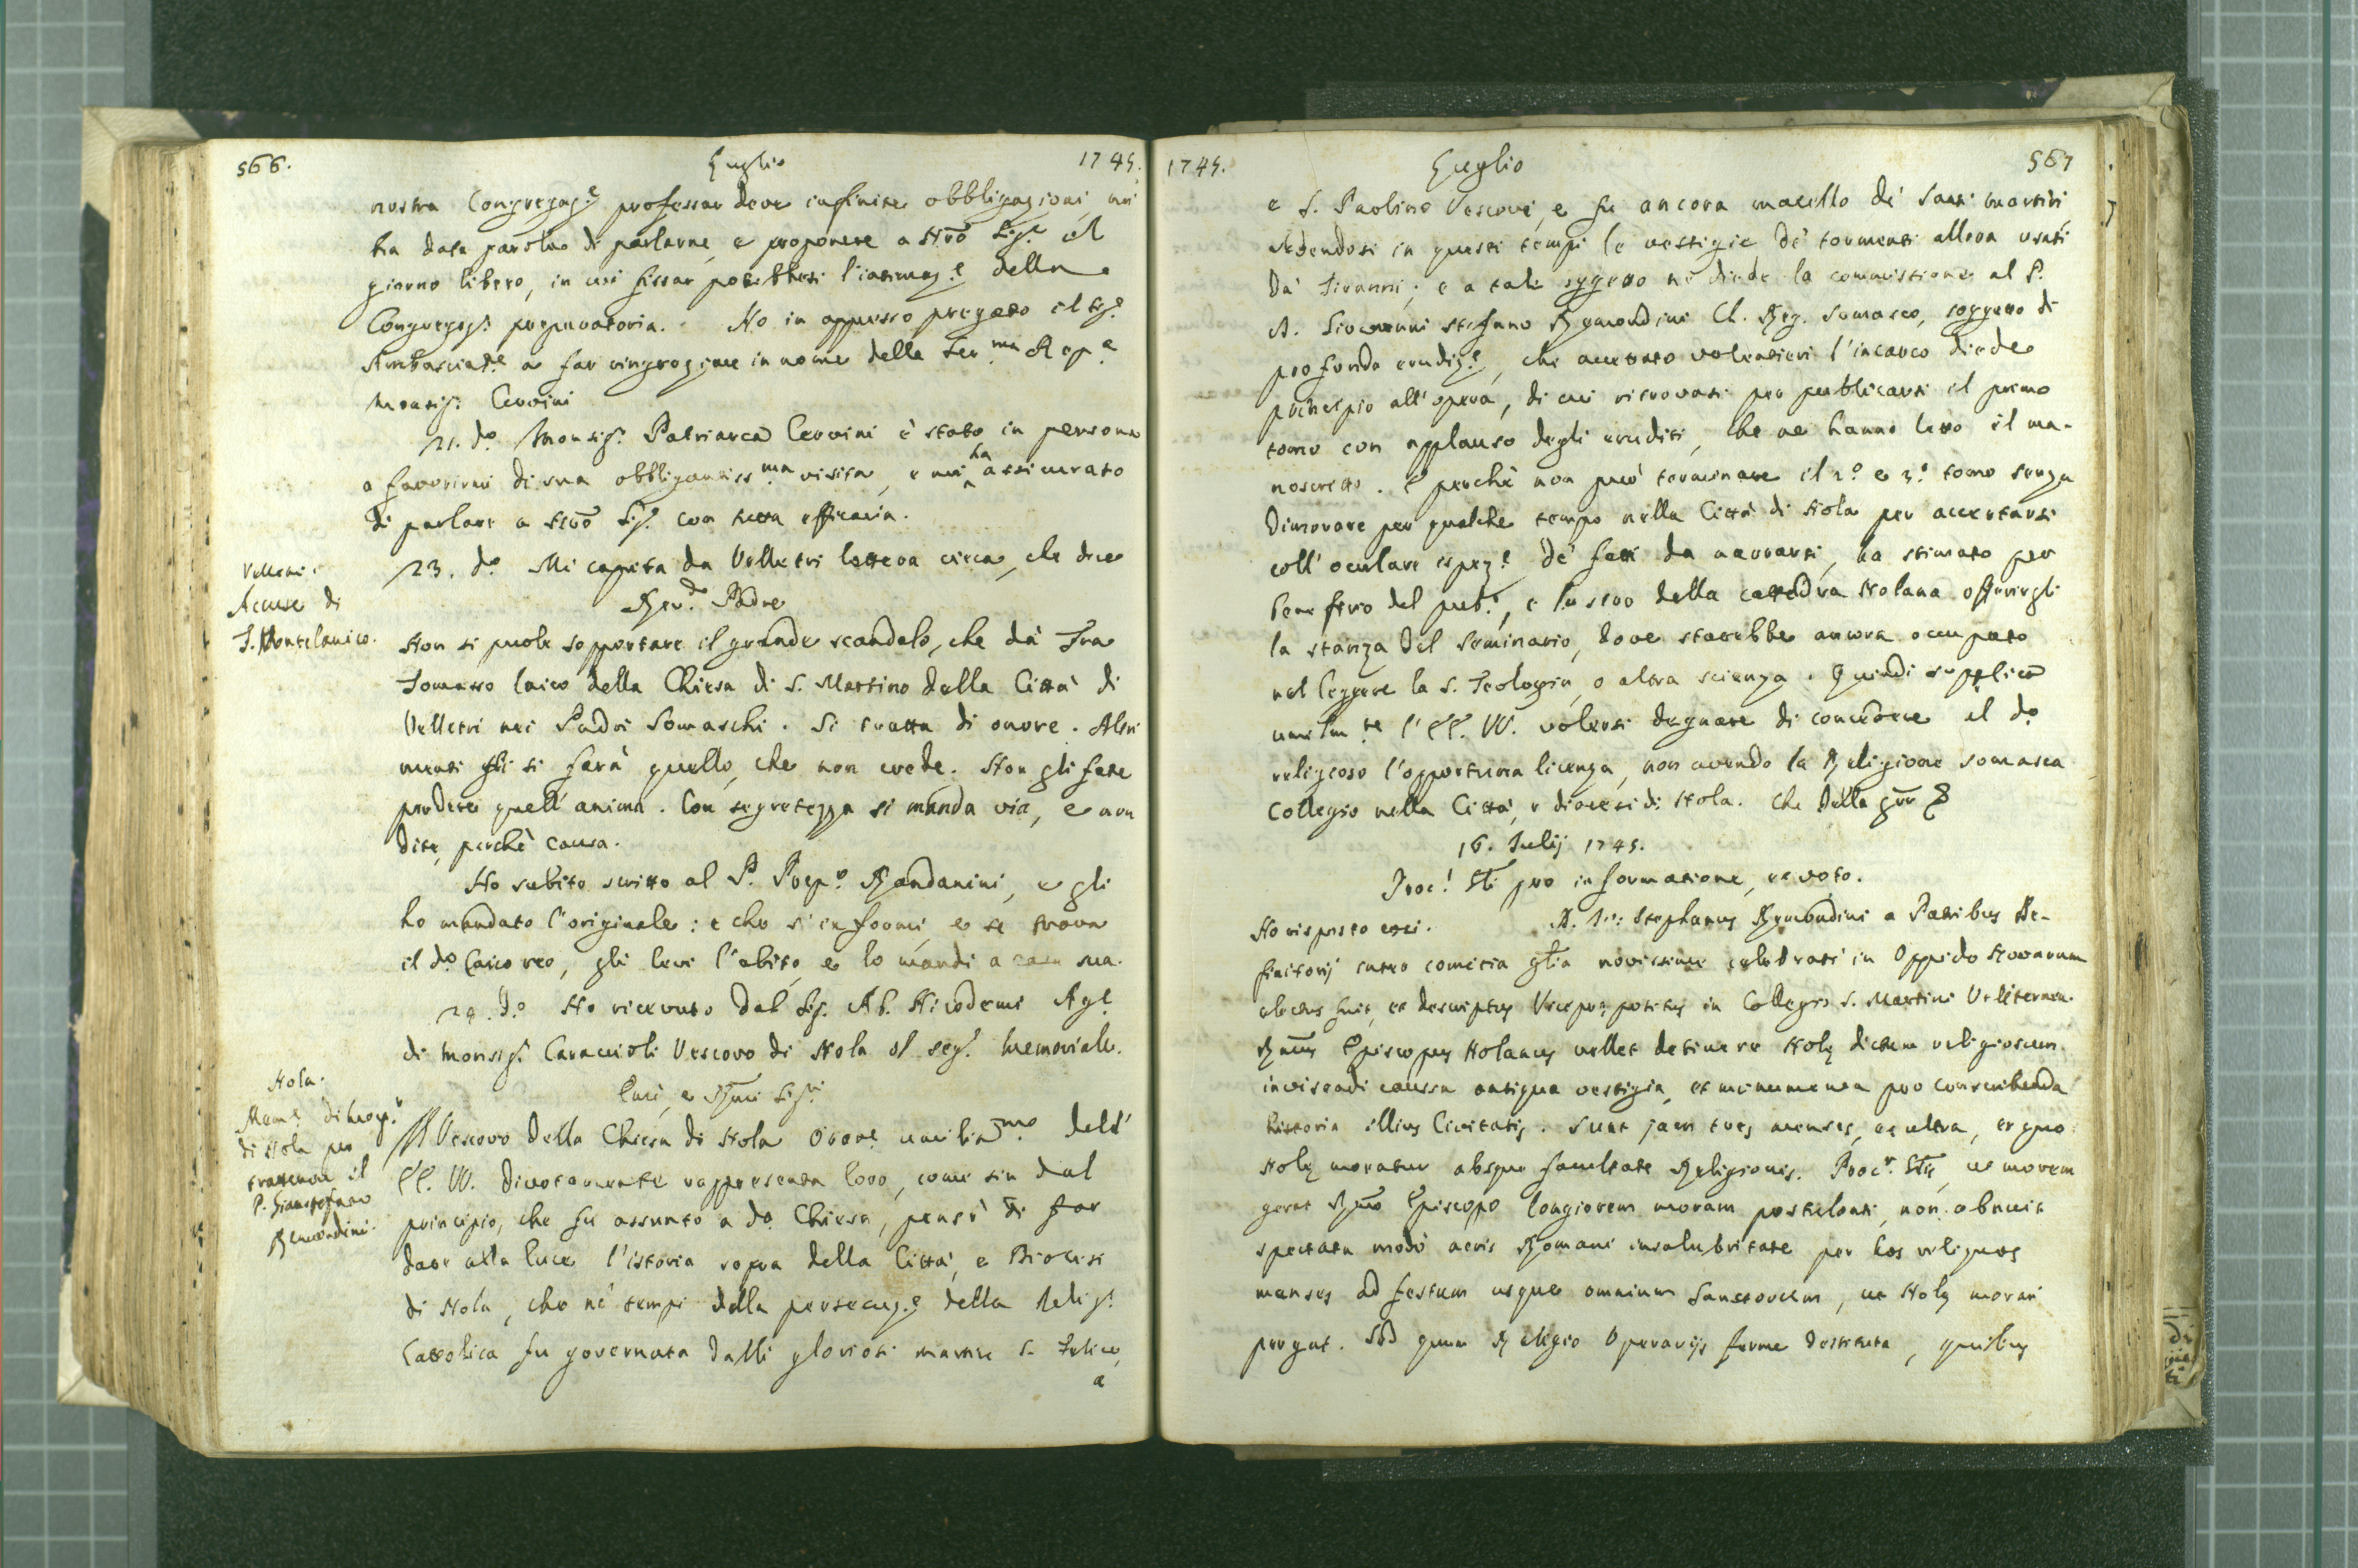 566. Luglio 1745.
nostra Congregaz.e professar deve infinite obbligazioni, mi
ha data parola di parlarne, e proponere a Nrō Sig.e il
giorno libero, in cui fissar potrebbesi l'intimaz.e della
Congregaz.e preparatoria. Ho in appresso pregato il Sig.e
Ambasciat.e a far ringraziare in nome della Ser.ma Rep.a
Monsig.r Cervini
21. d.o Monsig.r Patriarca Cervini è stato in persona
a favorirmi di sua obbligantiss.ma visita, e mi ha assicurato
di parlare a Nrō Sig.e con tutta efficacia.
Velletri.
Accuse di
T. Montelanico.
23. d.o Mi capita da Velletri lettera cieca, che dice
Rev.do Padre
Non si puole sopportare il grande scandalo, che dà Fra
Tomasso laico della Chiesa di S. Martino della Città di
Velletri nei Padri Somaschi. Si tratta di onore. Altri
menti gli si farà quello, che non crede. Non gli fate
perdere quell'anima. Con segretezza si manda via, e non
dite, perchè causa.
Ho subito scritto al P. Prep.o Randanini, e gli
ho mandato l'originale: e che s'informi, e se trova
il d.o laico reo, gli levi l'abito, e lo mandi a casa sua.
24. d.o Ho ricevuto dal Sig. Ab. Nicodemi Ag.e
di Monsig.r Caraccioli Vescovo di Nola il seg.e memoriale.
Nola.
Mem.e di Mon.r
di Nola per
trattenere il
P. Gianstefano
Remondini.
Emi, e Rm̄i Sig.ri
Il Vescovo della Chiesa di Nola Orat.e umilis.mo dell'
EE. VV. divotamente rappresenta loro, come sin dal
principio, che fu assunto a d.a Chiesa, pensò di far
dare alla luce l'istoria sopra della Città, e Diocesi
di Nola, che nè tempi della persecuz.e della Relig.e
Cattolica fu governata dalli gloriosi martire S. Felice,
a
1745. Luglio 567
e S. Paolino Vescovi, e fu ancora macello dè Santi martiri,
vedendosi in questi tempi le vestigie dè tormenti allora usati
da' Tiranni; e a tale oggetto ne diede la commissione al P.
D. Giovanni Stefano Remondini Ch. Reg. Somasco, soggetto di
profonda erudiz.e, che accettato volentieri l'incarco diede
principio all'opera, di cui ritrovasi per publicarsi il primo
tomo con applauso degli eruditi, che ne hanno letto il ma-
noscritto. E perchè non può terminare il 2.o e 3.o tomo senza
dimorare per qualche tempo nella Città di Nola per accertarsi
coll'oculare ispez.e dè fatti da narrarsi, ha stimato per
benefizio del pub.o, e lustro della cattedra Nolana offerirgli
la stanza del Seminario, dove starebbe ancora occupato
nel leggere la S. Teologia, o altra scienza. Quindi supplica
umilm.te l'EE. VV. volersi degnare di concedere al d.o
religioso l'opportuna licenza, non avendo la Religione Somasca
Collegio nella Città, e diocesi di Nola. Che della grā &
16. Julij 1745.
Proc.i Gli pro informatione, et voto.
Ho risposto così. D. Jo: Stephanus Remondini a Patribus De-
finitorij intra comitia gn̄lia novissime celebrati in Oppido Novarum
electus fuit, et descriptus Viceprepositus in Collegio S. Martini Veliternen.
Rm̄us Episcopus Nolanus vellet detinere Nolę dictum religiosum
inviseadi caussa antiqua vestigia, et monumenta pro conscribenda
historia illius Civitatis. Sunt jam tres menses, et ultra, ex quo
Nolę moratur absque facultate Religionis. Proc.r Glis, ut morem
gerat Rm̄o Episcopo longiorem moram postulanti, non abnuit
spectata modò aeris Romani insalubritate per hos reliquos
menses ad festum usque omnium Sanctorum, ut Nolę morari
pergat. Sed quum Religio Operarijs ferme destituta, quibus